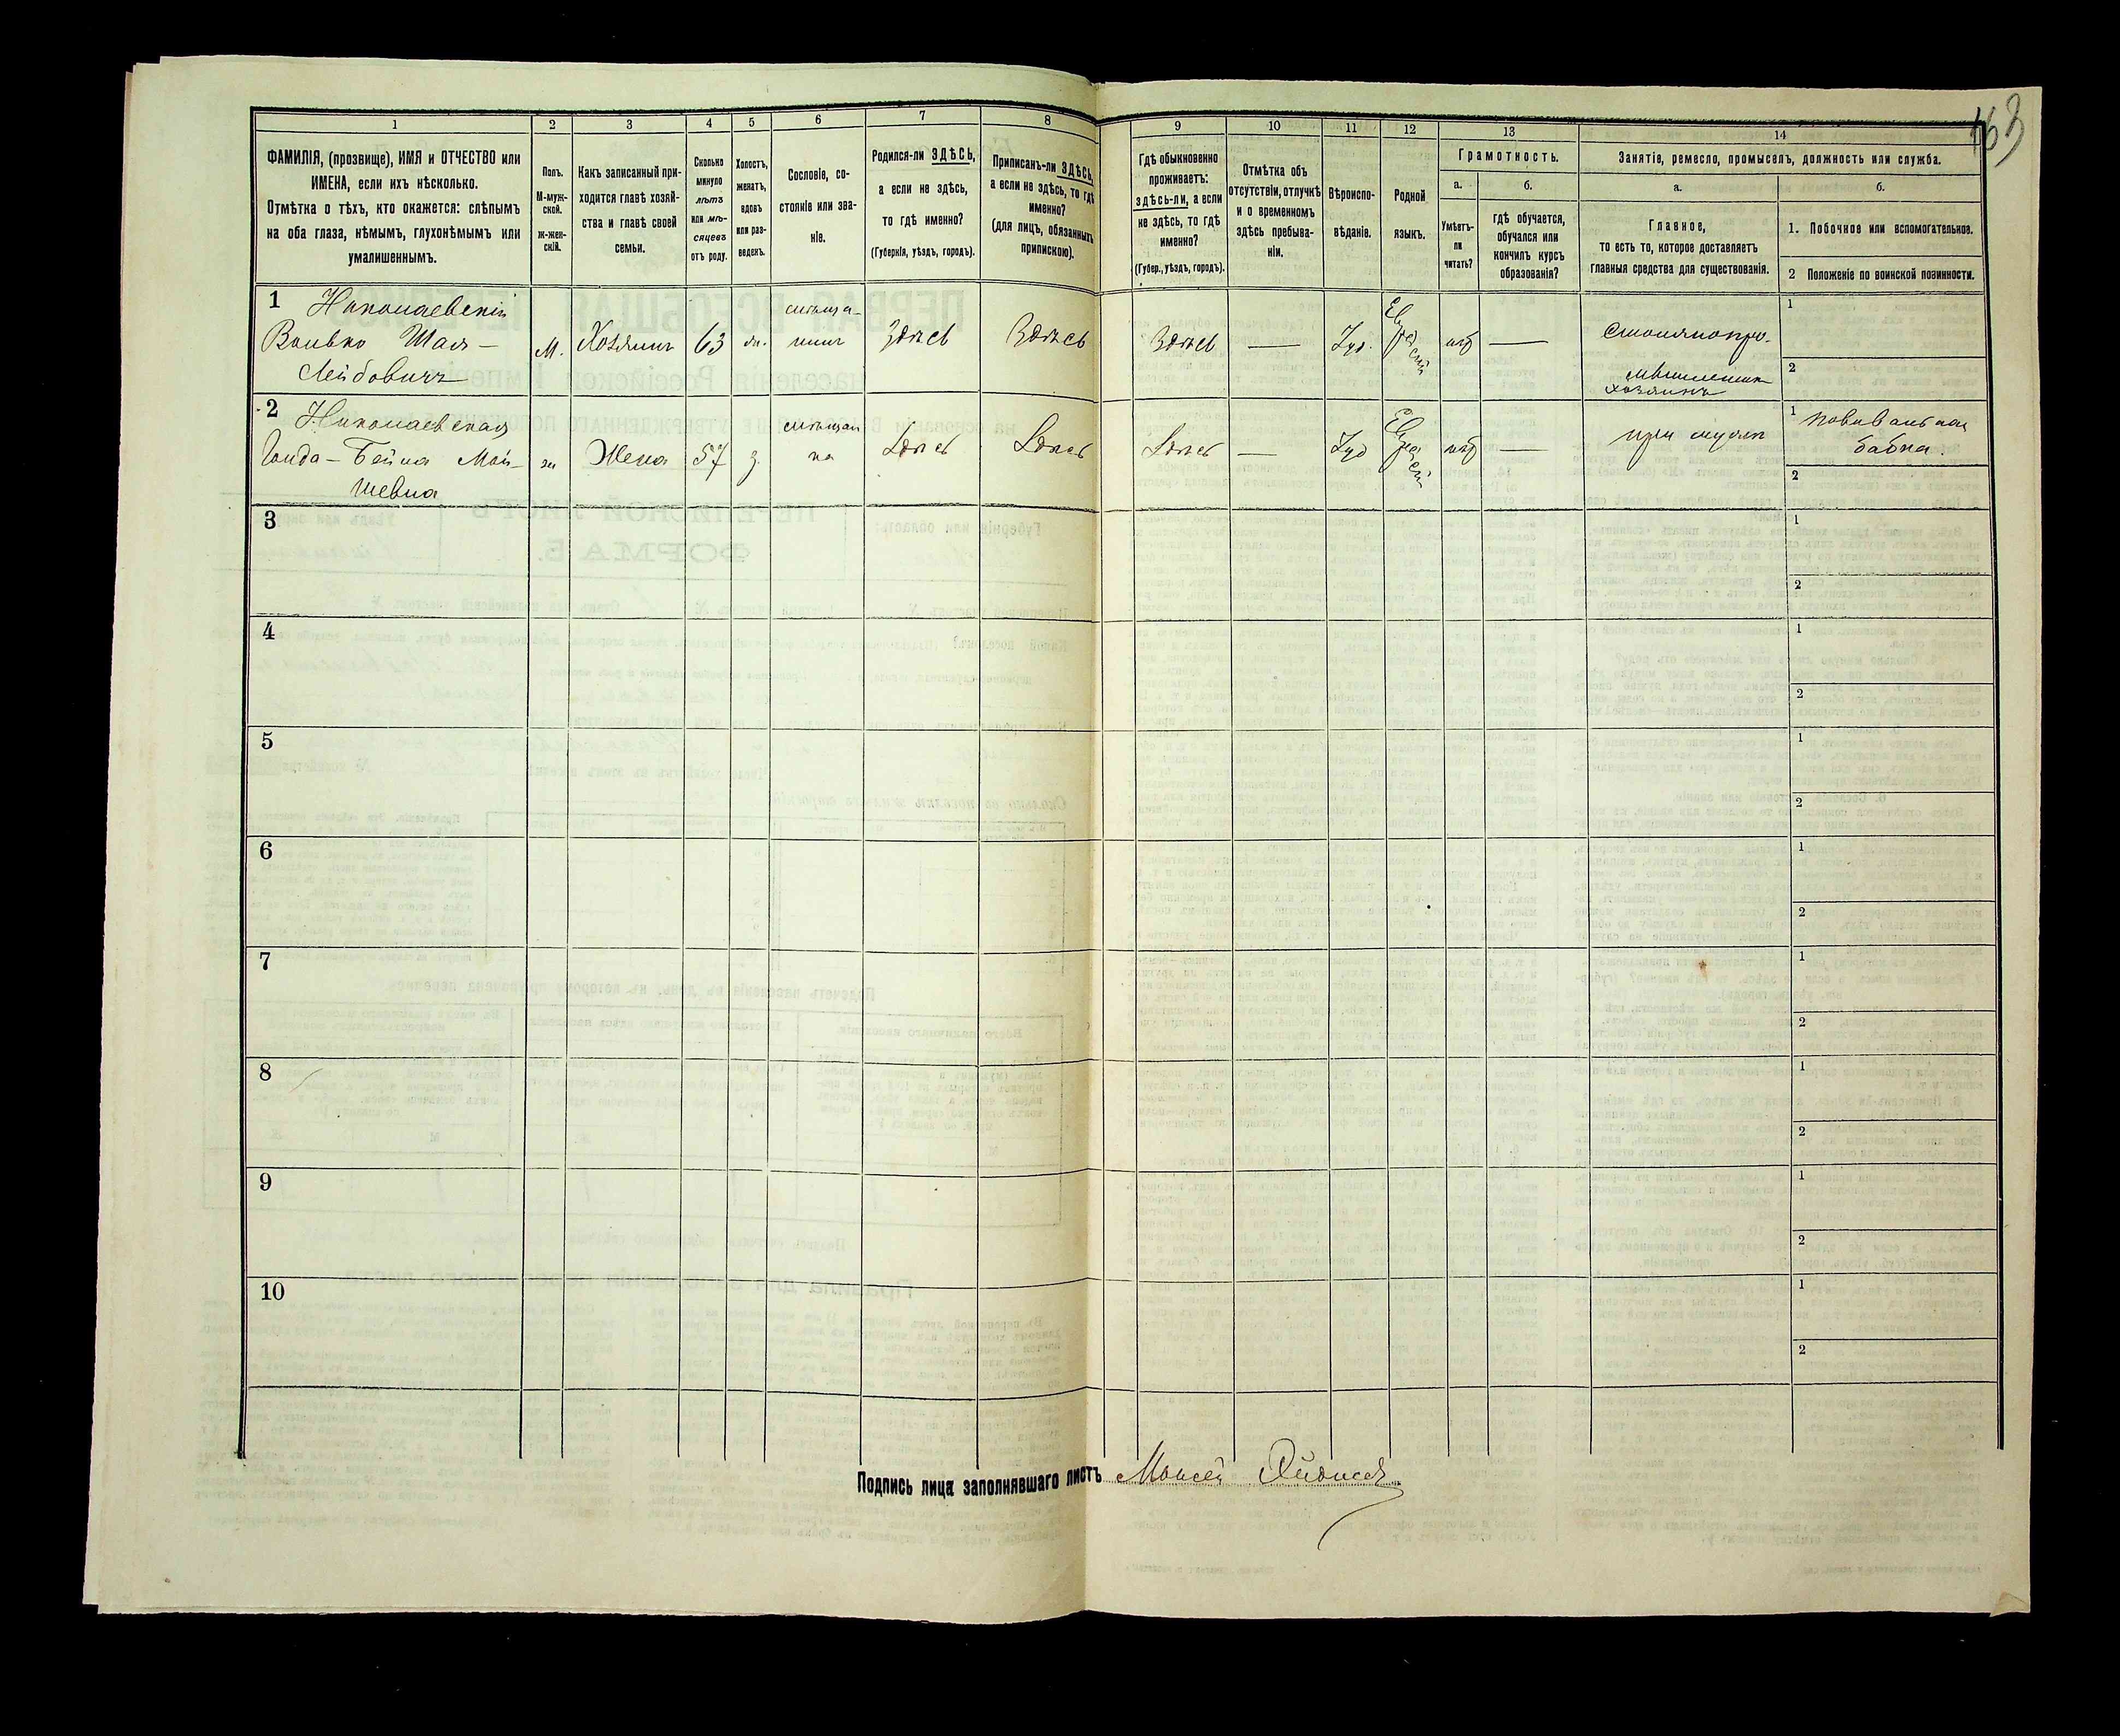 163
1
2
3
4
5
6
7
8
9
10
11
12
13
14
ФАМИЛІЯ, (прозвище), ИМЯ и ОТЧЕСТВО или
ИМЕНА, если ихъ нѣсколько.
Отмѣтка о тѣхъ, кто окажется: слѣпымъ
на оба глаза, нѣмымъ, глухонѣмымъ или
умалишеннымъ.
Полъ.
М-муж-
ской.
ж-жен-
скій.
Какъ записанный при-
ходится главѣ хозяй-
ства и главѣ своей
семьи.
Сколько
минуло
лѣтъ
или мѣ-
сяцевъ
отъ роду.
Холостъ,
женатъ,
вдовъ
или раз-
веденъ.
Сословіе, со-
стояніе или зва-
ніе.
Родился-ли ЗДѢСЬ,
а если не здѣсь,
то гдѣ именно?
(Губернія, уѣздъ, городъ).
Приписанъ-ли ЗДѢСЬ,
а если не здѣсь, то гдѣ
именно?
(для лицъ, обязанныхъ
припискою).
Гдѣ обыкновенно
проживаетъ:
здѣсь-ли, а если
не здѣсь, то гдѣ
именно?
(Губер., уѣздъ, городъ).
Отмѣтка объ
отсутствіи, отлучкѣ
и о временномъ
здѣсь пребыва-
ніи.
Вѣроиспо-
вѣданіе.
Родной
языкъ.
Грамотность.
а.
б.
Умѣетъ-
ли
читать?
гдѣ обучается,
обучался или
кончилъ курсъ
образованія?
Занятіе, ремесло, промыселъ, должность или служба.
а.
б.
Главное,
то есть то, которое доставляетъ
главныя средства для существованія.
1. Побочное или вспомогательное.
2 Положеніе по воинской повинности.
1 Николаевскій
Волько Шая —
Лейбовичъ
м.
Хозяинъ
63
жн.
мѣща-
нинъ
Здѣсь
Здѣсь
Здѣсь
—
Іуд.
Еврейскій
нѣтъ
—
хозяинъ
1
2
2 Николаевская
Бейна Мов-
шевна
ж
Жена
57
з.
мѣщан
ка
Здѣсь
Здѣсь
Здѣсь
—
Іуд
Еврейскій
нѣтъ
—
при мужѣ
1 повивальная
бабка.
2
3
1
2
4
1
2
5
1
2
6
1
2
7
1
2
8
1
2
9
1
2
10
1
2
Подпись лица заполнявшаго листъ Моисей